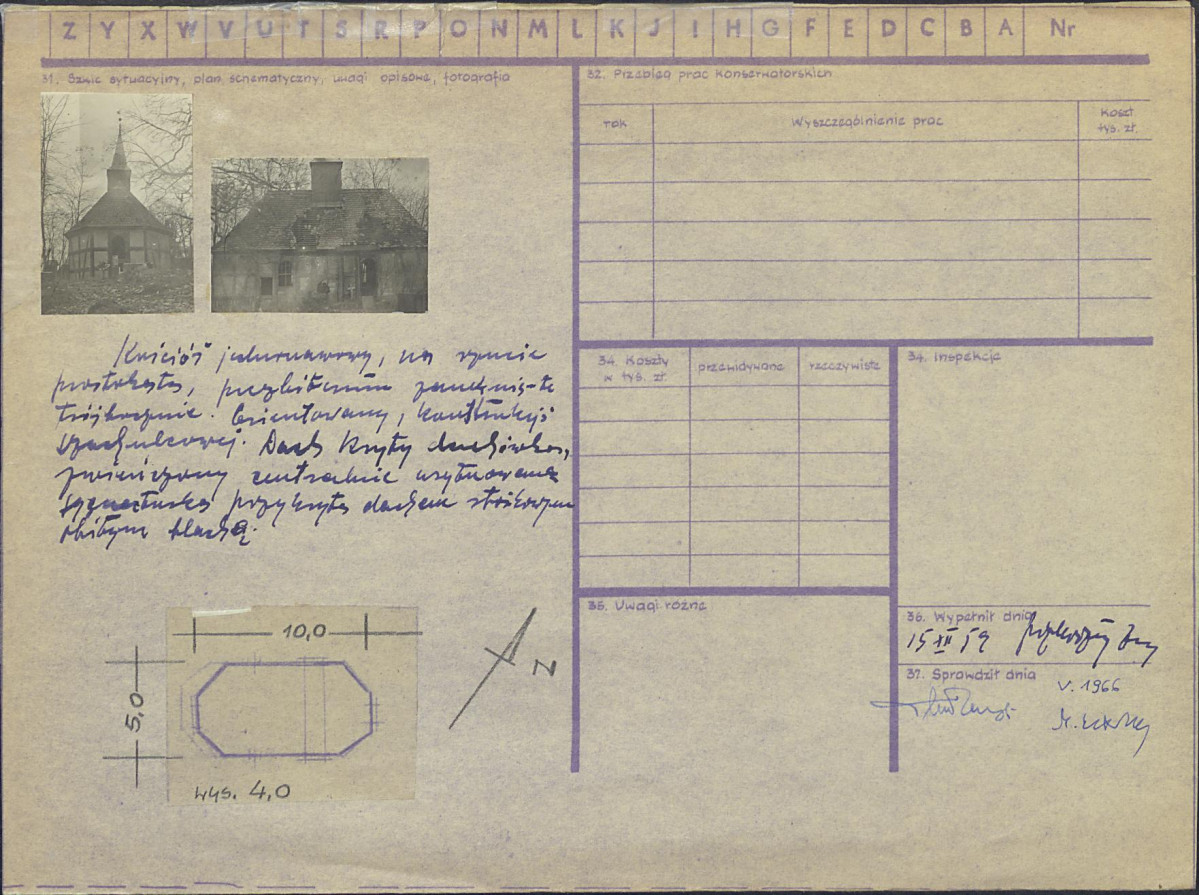 Z Y X W V U T S R P O N M L K J I H G F E D C B A Nr
31. Szkic sytuacyjny, plan schematyczny, uwagi opisowe, fotografia
Kościół jednonawowy, na rzucie
prostokąta, prezbiterium zamknięte
trójbocznie. Orientowany, konstrukcji
szachulcowej. Dach kryty dachówką,
zwieńczony centralnie usytuowaną
sygnaturką przykrytą dachem stożkowym
obitym blachą.
10,0
5,0
wys. 4,0
N
32. Przebieg prac konserwatorskich
rok
Wyszczególnienie prac
Koszt
tys. zł.
34. Koszty
w tys. zł.
przewidywane
rzeczywiste
34. Inspekcje
35. Uwagi różne
36. Wypełnił dnia
15 XII 59
37. Sprawdził dnia
V. 1966